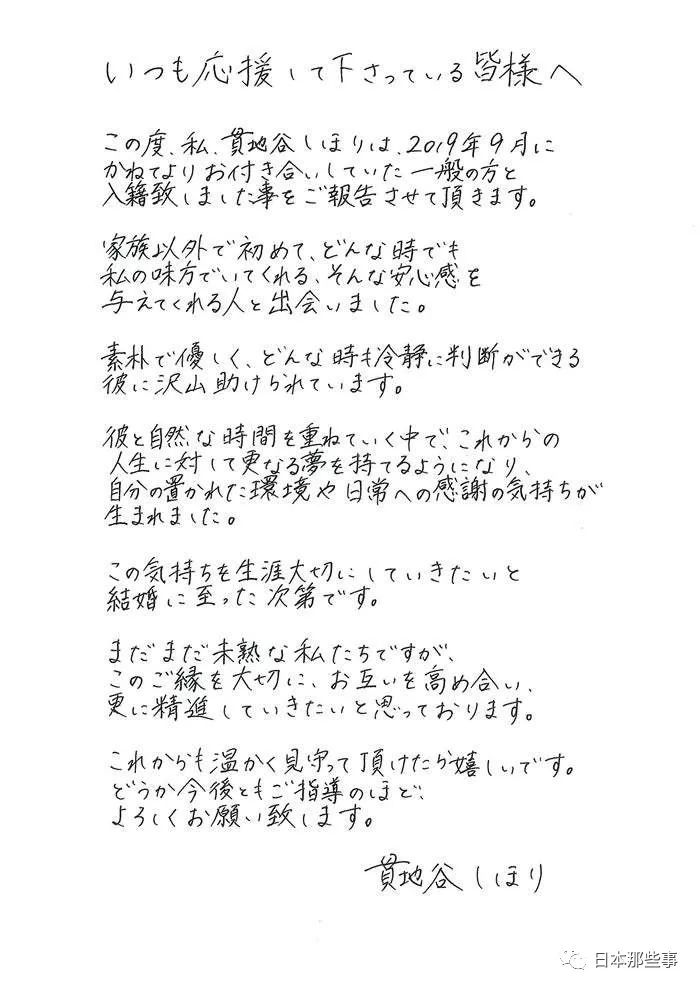 いつも応援して下さっている皆様へ
この度、私、貫地谷しほりは、2019年9月に
かねてよりお付き合いしていた一般の方と
入籍致しました事をご報告させて頂きます。
家族以外で初めて、どんな時でも
私の味方でいてくれる、そんな安心感を
与えてくれる人と出会いました。
素朴で優しく、どんな時も冷静に判断ができる
彼に沢山助けられています。
彼と自然な時間を重ねていく中で、これからの
人生に対して更なる夢を持てるようになり、
自分の置かれた環境や日常への感謝の気持ちが
生まれました。
この気持ちを生涯大切にしていきたいと
結婚に至った次第です。
まだまだ未熟な私たちですが、
このご縁を大切に、お互いを高め合い、
更に精進していきたいと思っております。
これからも温かく見守って頂けたら嬉しいです。
どうか今後ともご指導のほど、
よろしくお願い致します。
貫地谷しほり
日本那些事